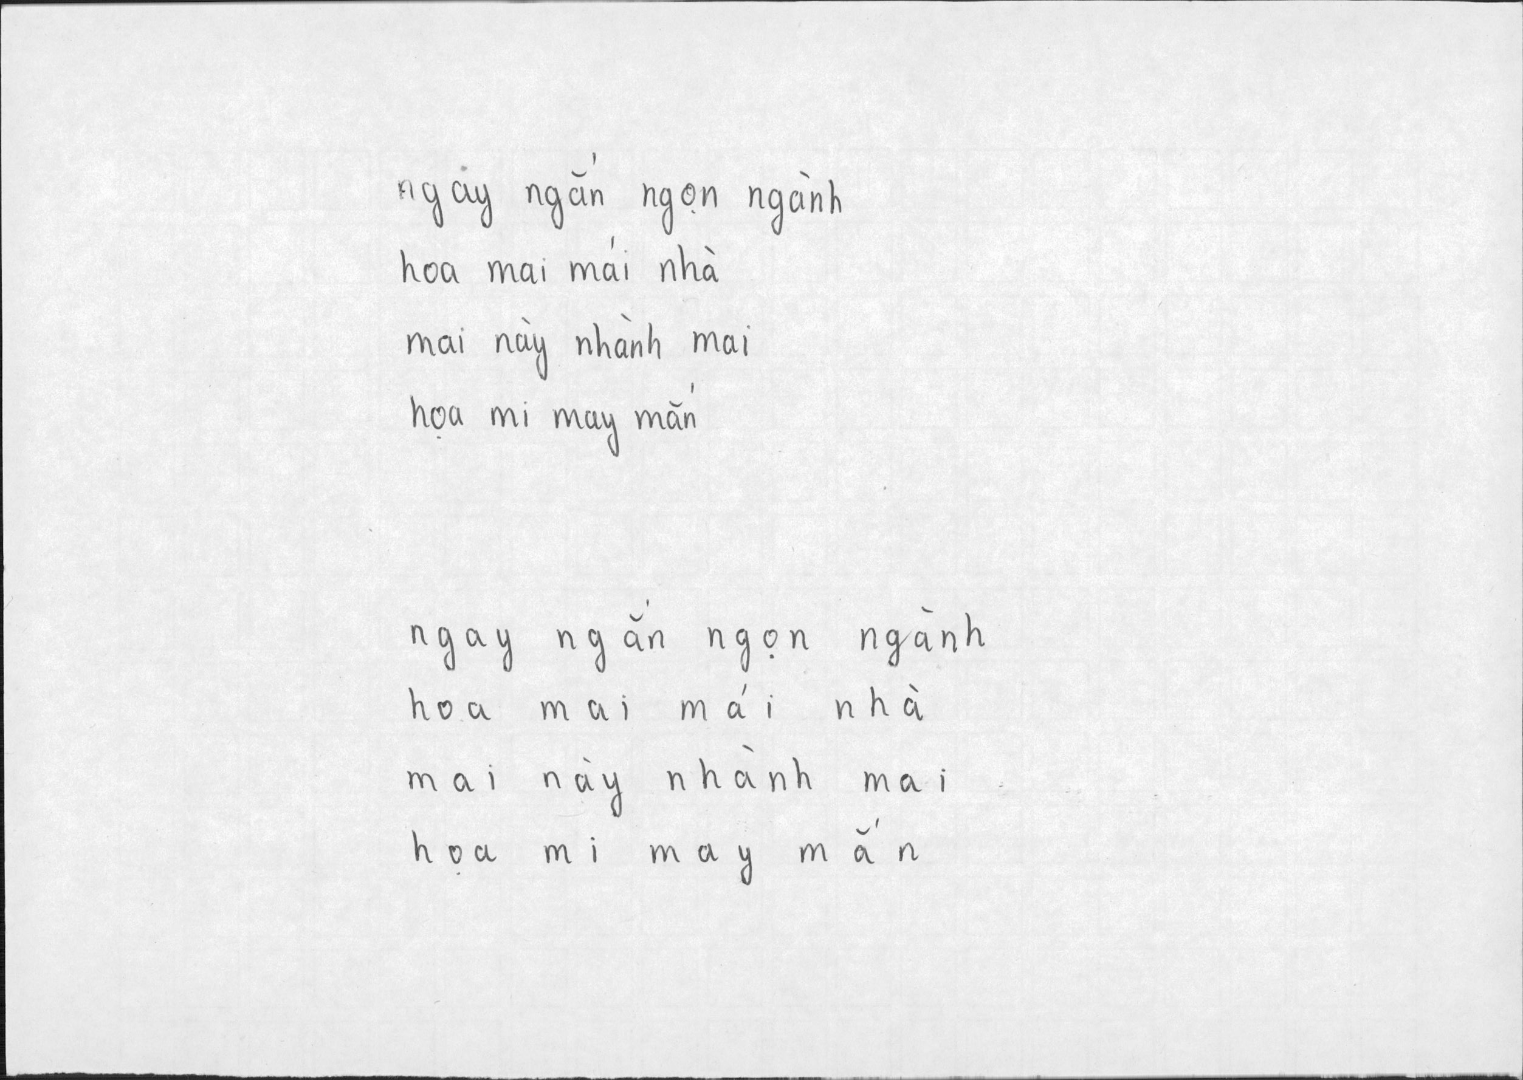 ngay ngắn ngọn ngành
hoa mai mái nhà
mai này nhành mai
họa mi may mắn
ngay ngắn ngọn ngành
hoa mai mái nhà
mai này nhành mai
họa mi may mắn